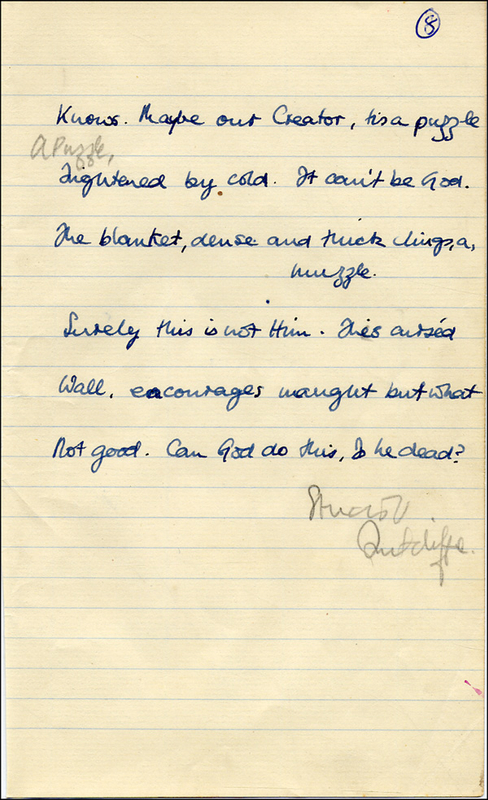 8
Knows. Maybe our Creator, tis a puzzle
A Puzzle,
Tightened by cold. It can't be God.
The blanket, dense and thick clings, a,
muzzle.
Surely this is not Him. This cursèd
Wall, encourages naught but what
Not good. Can God do this, Is he dead?
Stuart
Sutcliffe.